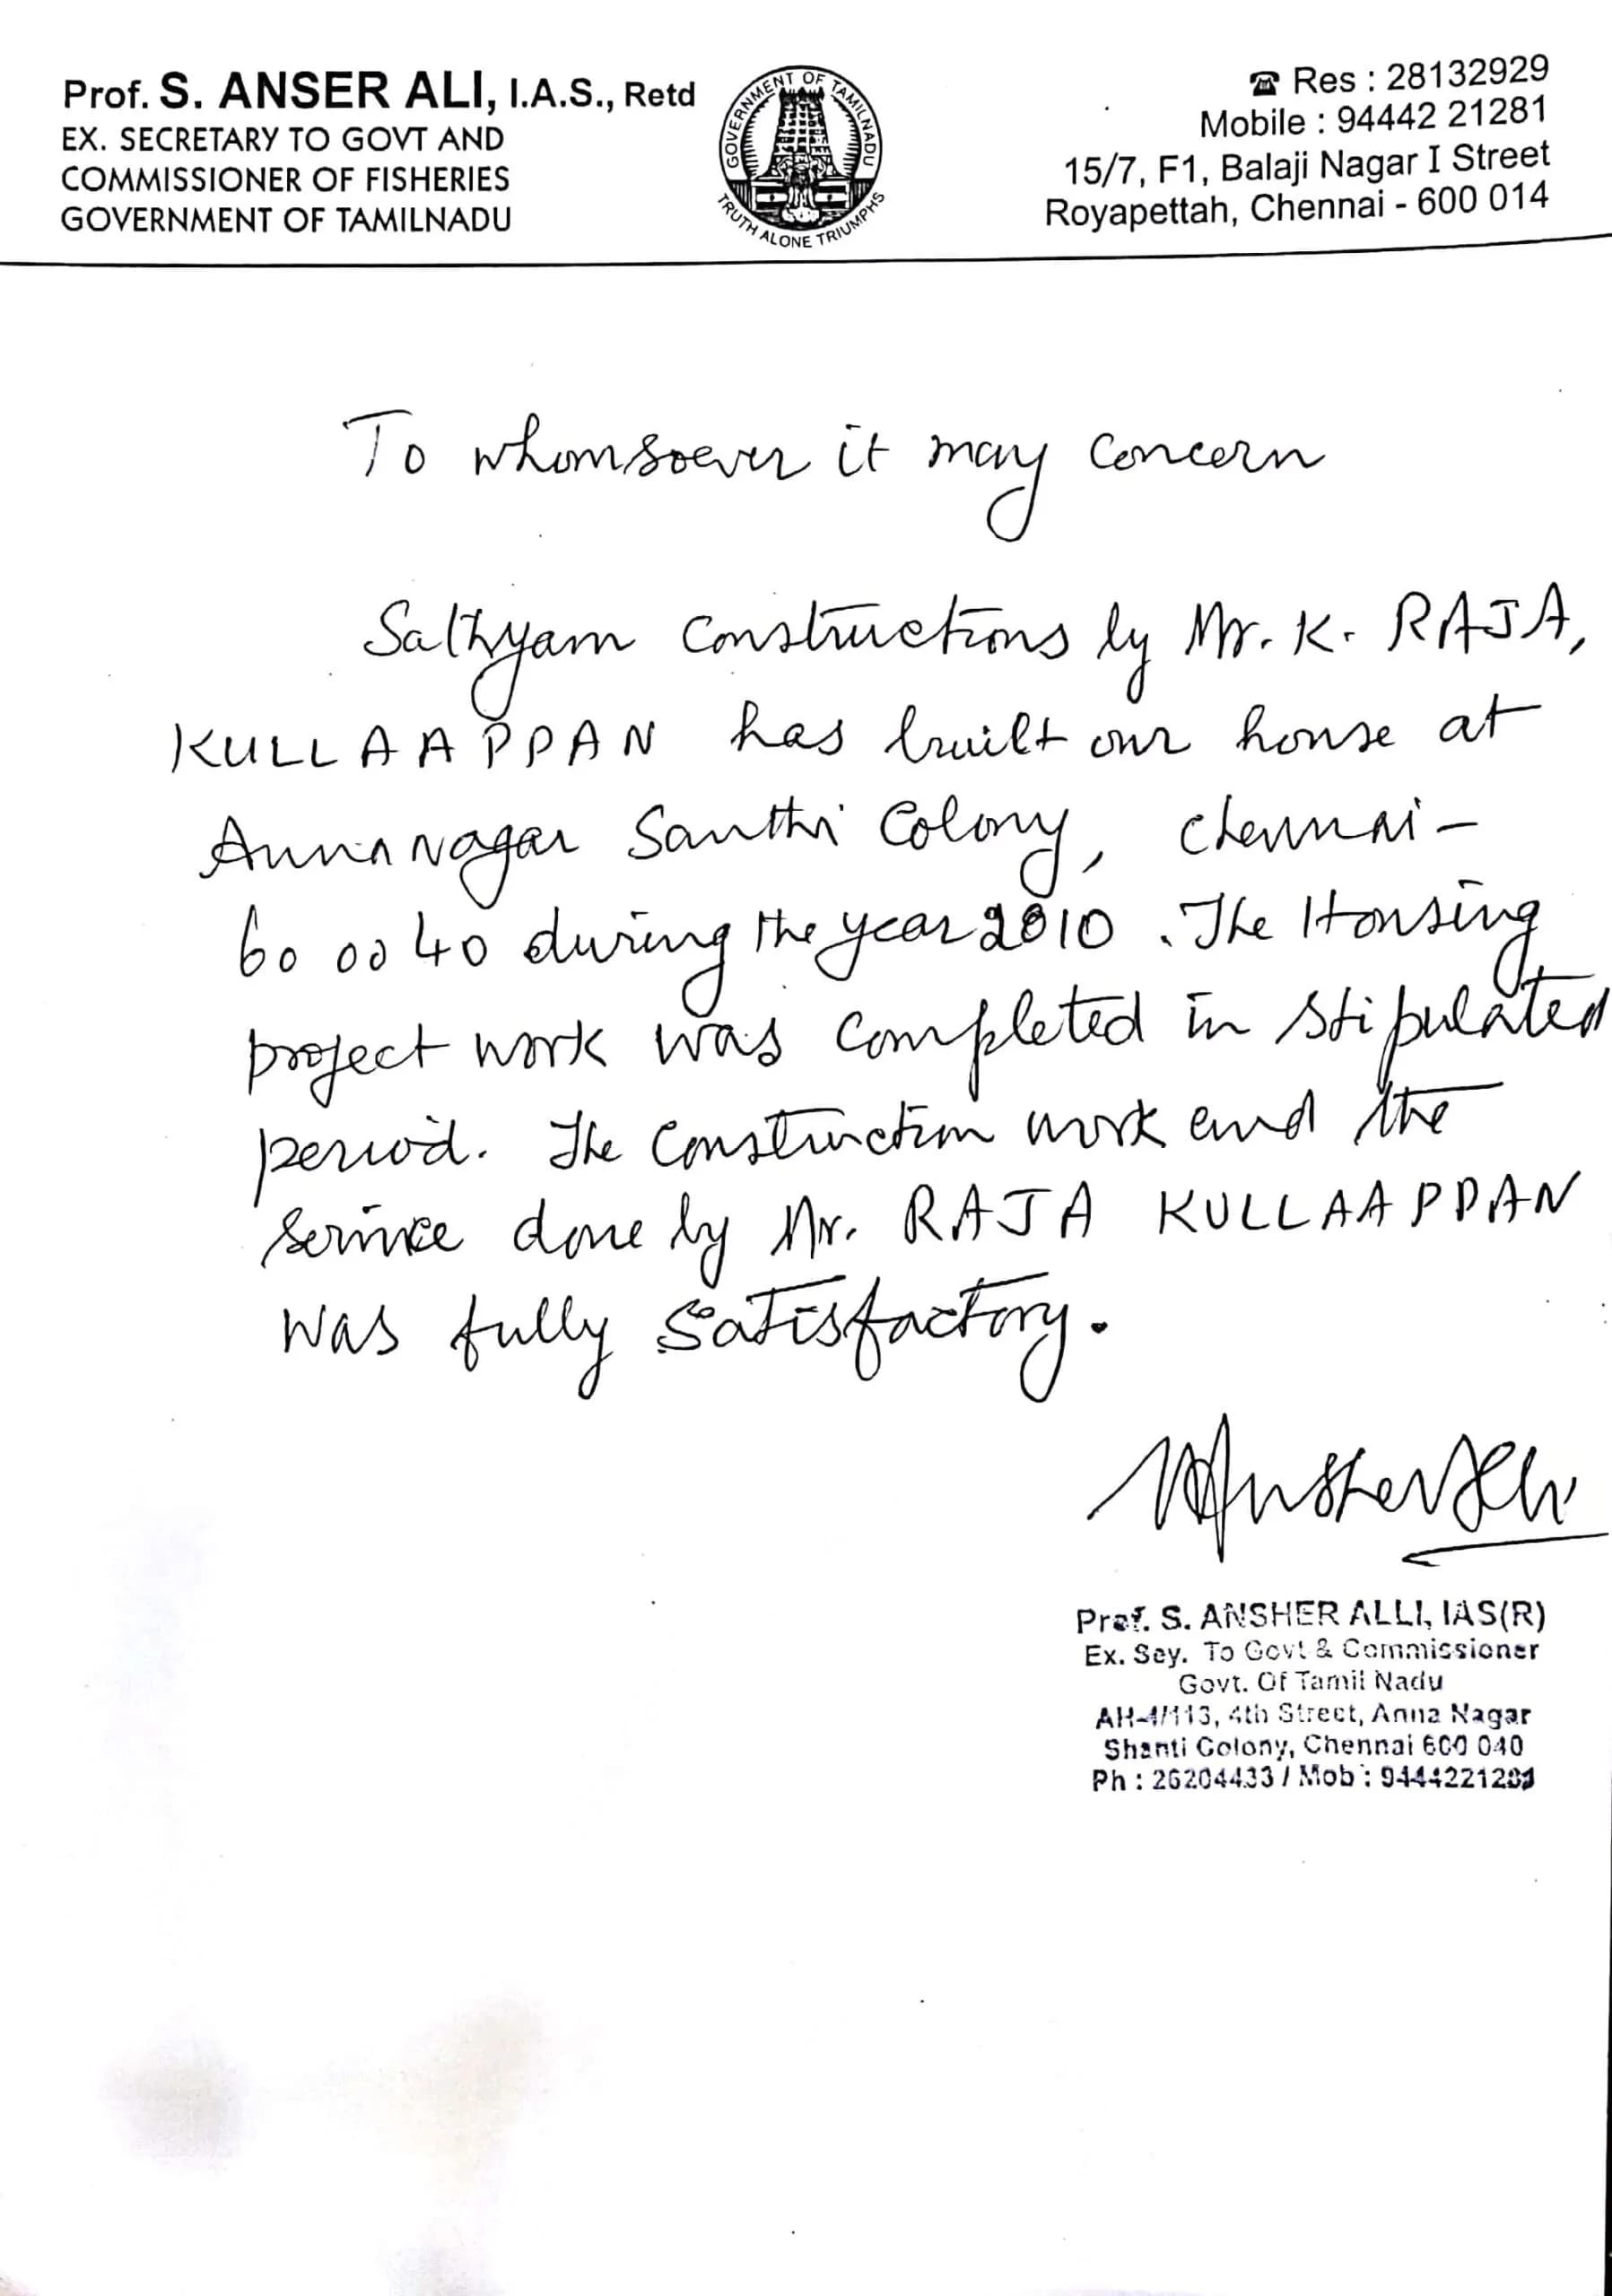 Prof. S. ANSER ALI, I.A.S., Retd
EX. SECRETARY TO GOVT AND
COMMISSIONER OF FISHERIES
GOVERNMENT OF TAMILNADU
GOVERNMENT OF TAMILNADU
TRUTH ALONE TRIUMPHS
☎ Res : 28132929
Mobile : 94442 21281
15/7, F1, Balaji Nagar I Street
Royapettah, Chennai - 600 014
To whomsoever it may concern
Sathyam Constructions by Mr. K. RAJA,
KULLAAPPAN has built our house at
Annanagar Santhi Colony, Chennai-
60 00 40 during the year 2010. The Housing
project work was completed in stipulated
period. The Construction work and the
service done by Mr. RAJA KULLAAPPAN
was fully satisfactory.
AnsherAlli
Prof. S. ANSHER ALLI, IAS(R)
Ex. Sey. To Govt & Commissioner
Govt. Of Tamil Nadu
AH-4/113, 4th Street, Anna Nagar
Shanti Colony, Chennai 600 040
Ph : 26204433 / Mob : 9444221281